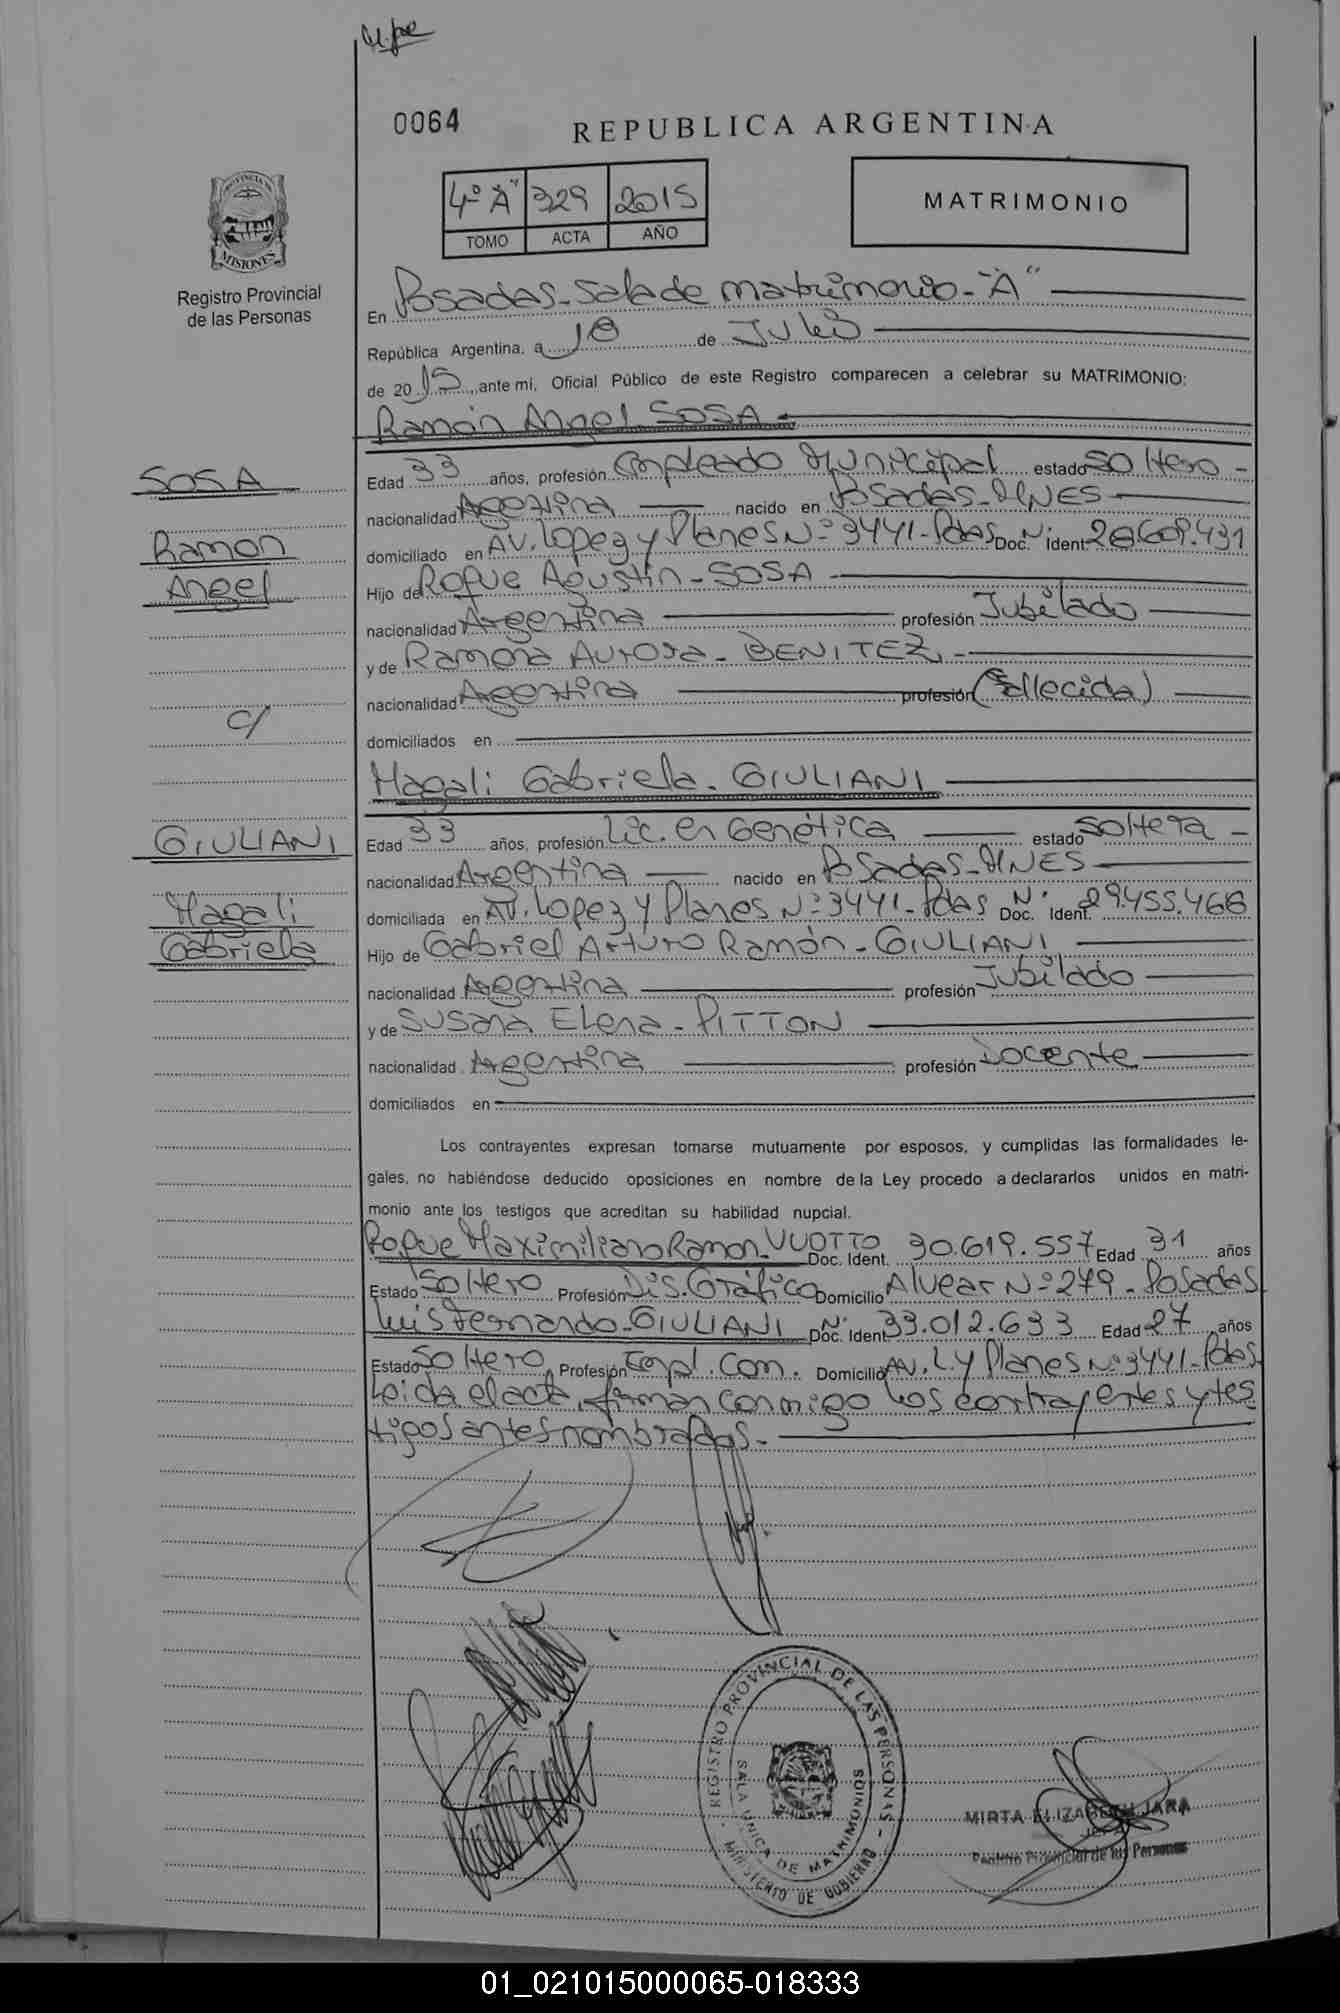 0064
REPUBLICA ARGENTINA
4º "A" 329 2015
TOMO ACTA AÑO
MATRIMONIO
PROVINCIA DE
MISIONES
Registro Provincial
de las Personas
En Posadas-Sala de matrimonio-"A"
República Argentina, a 18 de Julio
de 2015, ante mi, Oficial Público de este Registro comparecen a celebrar su MATRIMONIO:
Ramón Angel SOSA
SOSA
Ramon
Angel
c/
GIULIANI
Magali
Gabriela
Edad 33 años, profesión Empleado Municipal estado soltero -
nacionalidad Argentina nacido en Posadas-MNES
domiciliado en AV. Lopez y Planes Nº 3441-Pdas Doc. Nº ident. 28.609.431
Hijo de Roque Agustín - SOSA
nacionalidad Argentina profesión Jubilado
y de Ramona Aurora - BENITEZ -
nacionalidad Argentina profesión (Fallecida)
domiciliados en
Magali Gabriela - GIULIANI
Edad 33 años, profesión Lic. en Genética estado soltera -
nacionalidad Argentina nacido en Posadas-MNES
domiciliada en AV. Lopez y Planes Nº 3441-Pdas Doc. Nº Ident. 29.455.466
Hijo de Gabriel Arturo Ramón - GIULIANI
nacionalidad Argentina profesión Jubilado
y de Susana Elena - PITTON
nacionalidad Argentina profesión Docente
domiciliados en
Los contrayentes expresan tomarse mutuamente por esposos, y cumplidas las formalidades le-
gales, no habiéndose deducido oposiciones en nombre de la Ley procedo a declararlos unidos en matri-
monio ante los testigos que acreditan su habilidad nupcial.
Roque Maximiliano Ramon - VUOTTO Doc. Ident. 30.619.557 Edad 31 años
Estado Soltero Profesión Dis. Gráfico Domicilio Alvear Nº 279 - Posadas
Luis Fernando - GIULIANI Nº Doc. Ident. 33.012.633 Edad 27 años
Estado Soltero Profesión Empl. Com. Domicilio AV. L. y Planes Nº 3441-Pdas
Leida el acta, firman conmigo los contrayentes y tes
tigos antes nombrados. -
REGISTRO PROVINCIAL DE LAS PERSONAS
SALA UNICA DE MATRIMONIOS
MINISTERIO DE GOBIERNO
MIRTA ELIZABETH JARA
JEFA
Provincial de las Personas
01_021015000065-018333